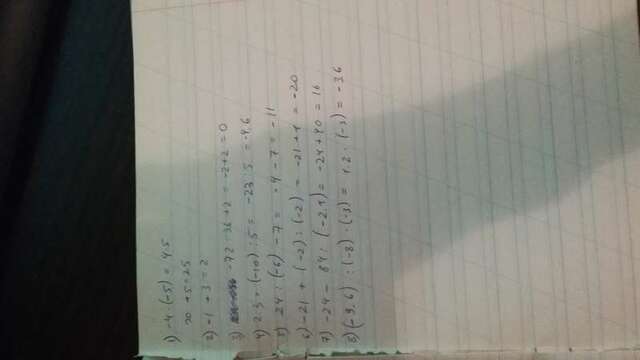 1) -4 · (-5) = 4·5
20 + 5 = 25
2) -1 + 3 = 2
3) -72 : 36 + 2 = -2+2 = 0
4) : 5 = -23 : 5 = -4,6
5) 24 : (-6) - 7 = -4 - 7 = -11
6) -21 + (-2) : (-2) = -21 + 1 = -20
7) -24 - 84 : (-2,1) = -24 + 40 = 16
8) (-9,6) : (-8) · (-3) = 1,2 · (-3) = -3,6